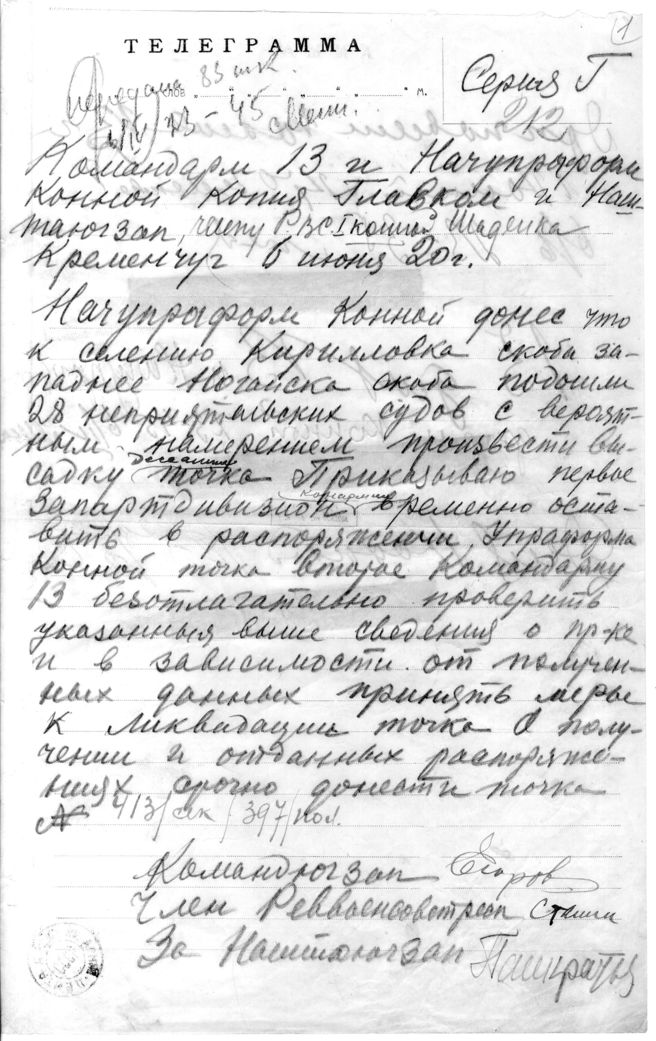 1
ТЕЛЕГРАММА
Передана 83 шк.
слов " " " " " м.
23-45
Серия Г
212
Командарм 13 и Начупраформ
Конной Копия Главком и Наш-
таюгзап, члену РВС I конной Щаденко
Кременчуг 6 июня 20 г.
Начупраформ Конной донес что
к селению Кирилловка скоба за-
паднее Ногайска скоба подошли
28 неприятельских судов с вероят-
ным намерением произвести вы-
садку десанта точка Приказываю первое
Запартдивизион Конармии временно оста-
вить в распоряжении Упраформа
Конной точка второе Командарму
13 безотлагательно проверить
указанныя выше сведения о пр-ке
и в зависимости от получен-
ных данных принять меры
к ликвидации точка О полу-
чении и отданных распоряже-
ниях срочно донести точка
№ 413/сек/397/пол.
Командюгзап Егоров
Член Реввоенсовета Сталин
За Наштаюгзап Панкратьев